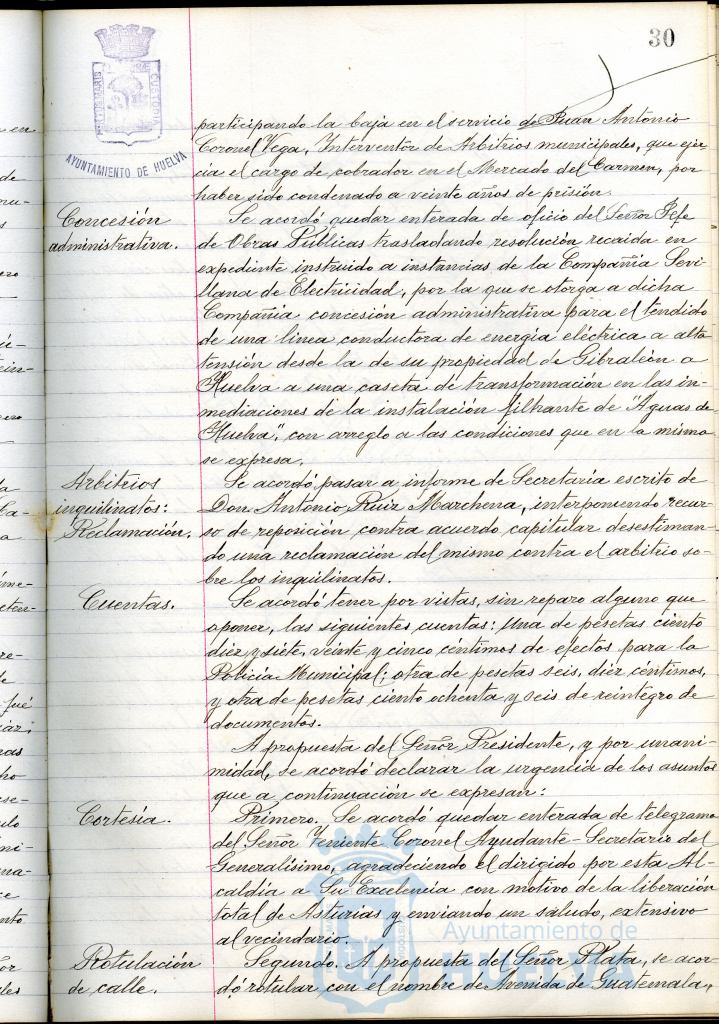 30
AYUNTAMIENTO DE HUELVA
participando la baja en el servicio de Juan Antonio
Coronel Vega, Interventor de Arbitrios municipales, que ejer-
cía el cargo de cobrador en el Mercado del Carmen, por
haber sido condenado a veinte años de prisión.
Concesión
administrativa.
Se acordó quedar enterada de oficio del Señor Jefe
de Obras Públicas trasladando resolución recaida en
expediente instruido a instancias de la Compañía Sevi-
llana de Electricidad, por la que se otorga a dicha
Compañía concesión administrativa para el tendido
de una línea conductora de energía eléctrica a alta
tensión desde la de su propiedad de Gibraleón a
Huelva a una caseta de transformación en las in-
mediaciones de la instalación filtrante de "Aguas de
Huelva", con arreglo a las condiciones que en la misma
se expresa.
Arbitrios
inquilinatos:
Reclamación.
Se acordó pasar a informe de Secretaría escrito de
Don Antonio Ruiz Marchena, interponiendo recur-
so de reposición contra acuerdo capitular desestiman-
do una reclamación del mismo contra el arbitrio so-
bre los inquilinatos.
Cuentas.
Se acordó tener por vistas, sin reparo alguno que
oponer, las siguientes cuentas: Una de pesetas ciento
diez y siete, veinte y cinco céntimos de efectos para la
Policía Municipal; otra de pesetas seis, diez céntimos,
y otra de pesetas ciento ochenta y seis de reintegro de
documentos.
A propuesta del Señor Presidente, y por unani-
midad, se acordó declarar la urgencia de los asuntos
que a continuación se expresan:
Cortesía.
Primero. Se acordó quedar enterada de telegrama
del Señor Teniente Coronel Ayudante-Secretario del
Generalísimo, agradeciendo el dirigido por esta Al-
caldía a Su Excelencia con motivo de la liberación
total de Asturias y enviando un saludo, extensivo
al vecindario.
Rotulación
de calle.
Segundo. A propuesta del Señor Plata, se acor-
dó rotular con el nombre de Avenida de Guatemala,
Ayuntamiento de
HUELVA